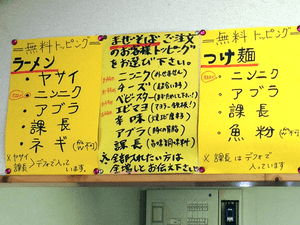 無料トッピング
ラーメン
・ヤサイ
・ニンニク
・アブラ
・課長
・ネギ
※ヤサイ
課長>デフォで入っています。
まぜそばご注文
のお客様トッピング
をお選び下さい。
ニンニク
チーズ
ベビースター
エビマヨ
辛味
アブラ
課長
※全部入れたい方は
全増しとお伝え下さい
無料トッピング
つけ麺
・ニンニク
・アブラ
・課長
・魚粉
※課長はデフォで
入っています。